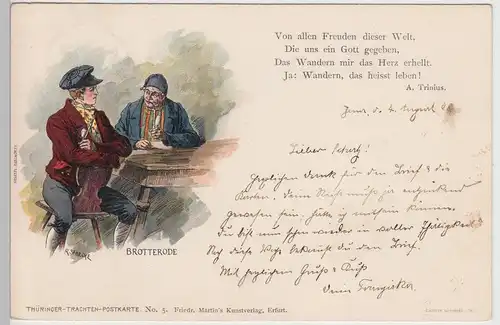 Von allen Freuden dieser Welt,
Die uns ein Gott gegeben,
Das Wandern mir das Herz erhellt.
Ja: Wandern, das heisst leben!
A. Trinius.
Jena, d. 4. August
Lieber Schatz!
Herzlichen Dank für den Brief & die
Karten. Deine Reise muß ja entzückend
gewesen sein, hätte ich mitsein können.
Du bist nun schon wieder in voller Thätigkeit.
Noch diese Woche bekommst du den Brief.
Mit herzlichem Gruß & Kuß
Deine Franziska
BROTTERODE
THÜRINGER-TRACHTEN-POSTKARTE. No. 5. Friedr. Martin's Kunstverlag, Erfurt.